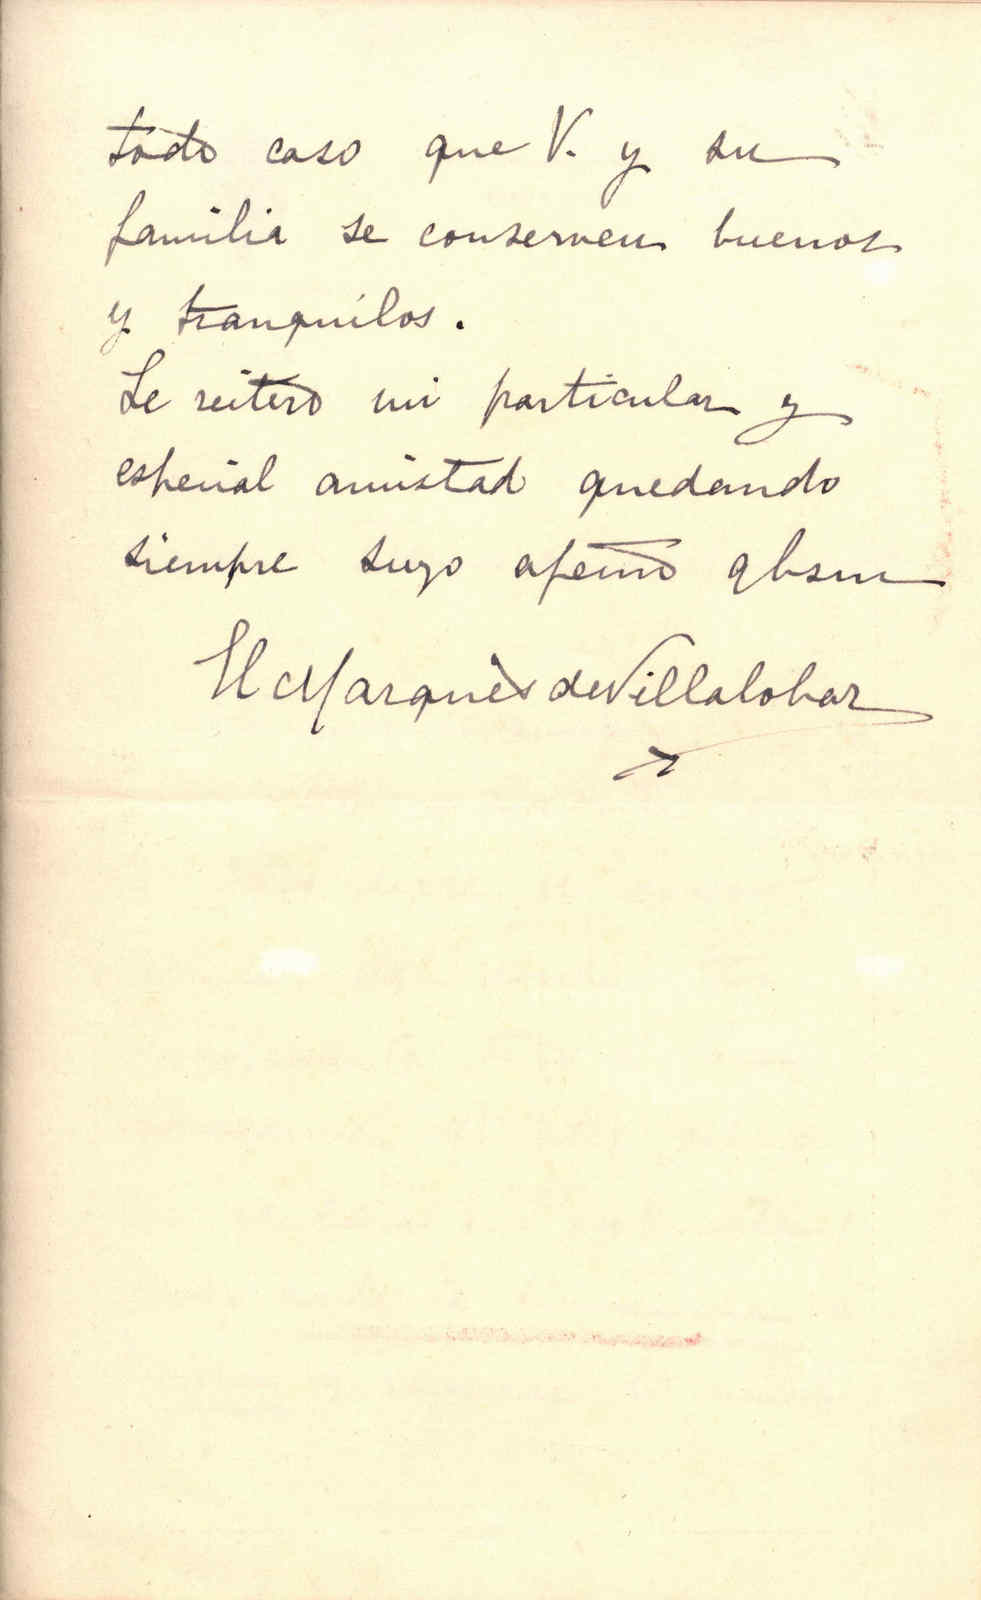 todo caso que V. y su
familia se conserven buenos
y tranquilos.
Le reitero mi particular y
especial amistad quedando
siempre suyo afemo qbsm
El Marquès de Villalobar